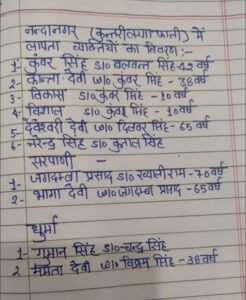 नन्दानगर (कुन्तरीलगाफाली) में
लापता व्यक्तियों का विवरण :-
1- कुंवर सिंह S/O बलवन्त सिंह-42 वर्ष
2- कान्ता देवी W/O कुंवर सिंह - 38 वर्ष
3- विकास S/O कुंवर सिंह - 10 वर्ष
4- विशाल S/O कुंवर सिंह - 10 वर्ष
5- देवेश्वरी देवी W/O दिलवर सिंह- 65 वर्ष
6- नरेन्द्र सिंह S/O कुताल सिंह
सरपाणी -
1- जगदम्बा प्रसाद S/O ख्यालीराम- 70 वर्ष
2- भागा देवी W/O जगदम्बा प्रसाद - 65 वर्ष
धुर्मा
1- गुमान सिंह S/O चन्द्र सिंह
2 ममता देवी W/O विक्रम सिंह - 38 वर्ष